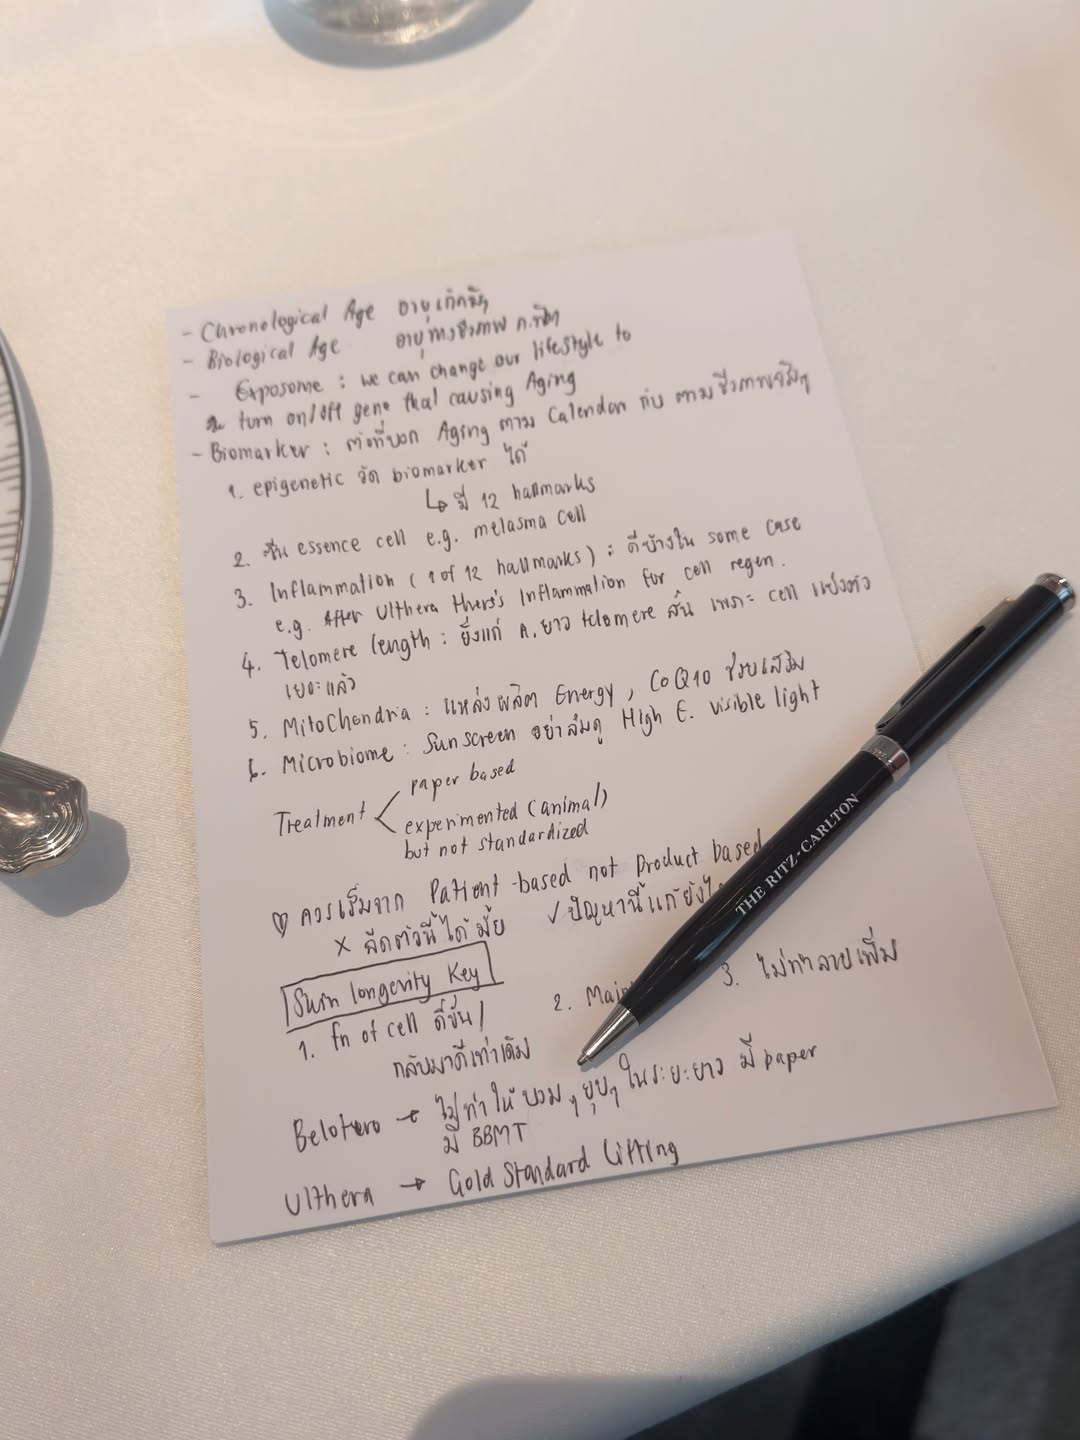 - Chronological Age อายุเกิดจริง
- Biological Age อายุทางชีวภาพ
- Exposome : we can change our lifestyle to
turn on/off gene that causing Aging
- Biomarker : ตัวที่บอก Aging ตาม Calendar กับ ตามชีวภาพจริงๆ
1. epigenetic วัด biomarker ได้
↳ มี 12 hallmarks
2. essence cell e.g. melasma cell
3. Inflammation (1 of 12 hallmarks) : ดีบ้างใน some case
e.g. After Ulthera there's Inflammation for cell regen.
4. Telomere length : ยิ่งแก่ ค.ยาว telomere สั้น เพราะ cell แบ่งตัว
เยอะแล้ว
5. Mitochondria : แหล่งผลิต Energy, CoQ10 ช่วยเสริม
6. Microbiome : Sunscreen อย่าลืมดู High E. visible light
Treatment
paper based
experimented (animal)
but not standardized
♡ ควรเริ่มจาก Patient-based not Product based
× ฉีดตัวนี้ได้มั้ย ✓ ปัญหานี้แก้ยังไง
Skin longevity Key
1. fn of cell ดีขึ้น/ 2. 3. ไม่ทำลายเพิ่ม
กลับมาดีเท่าเดิม
Belotero → ไม่ทำให้บวมๆ ยุบๆ ในระยะยาว มี paper
มี BBMT
Ulthera → Gold Standard Lifting
THE RITZ-CARLTON